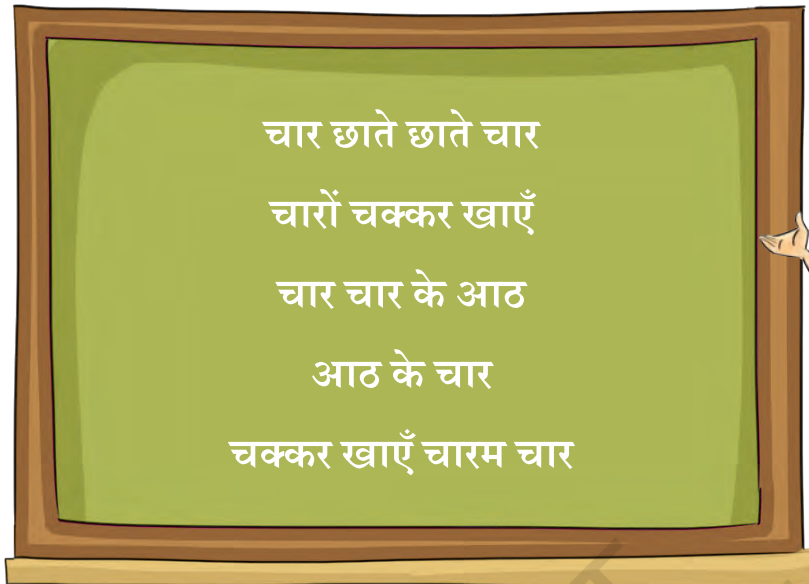 चार छाते छाते चार
चारों चक्कर खाएँ
चार चार के आठ
आठ के चार
चक्कर खाएँ चारम चार